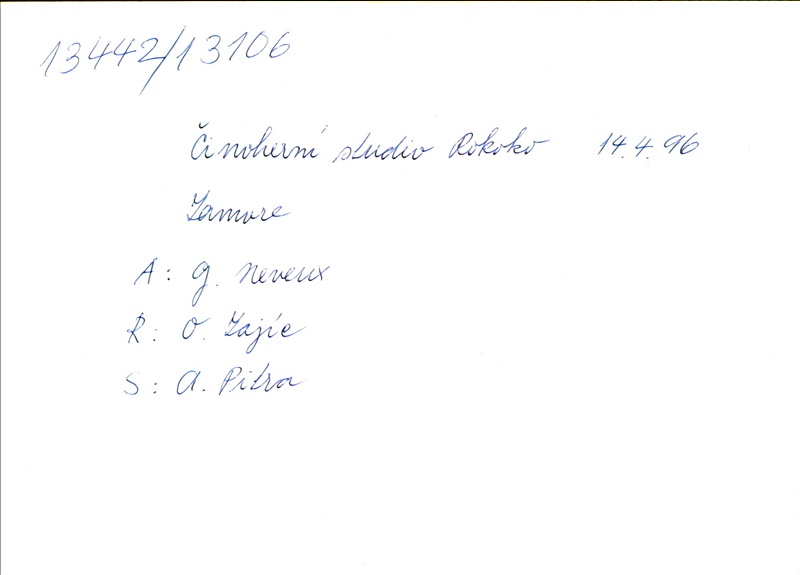 13442/13106
Činoherní studio Rokoko 14.4.96
Zamore
A: G. Neveux
R: O. Zajíc
S: A. Pitra